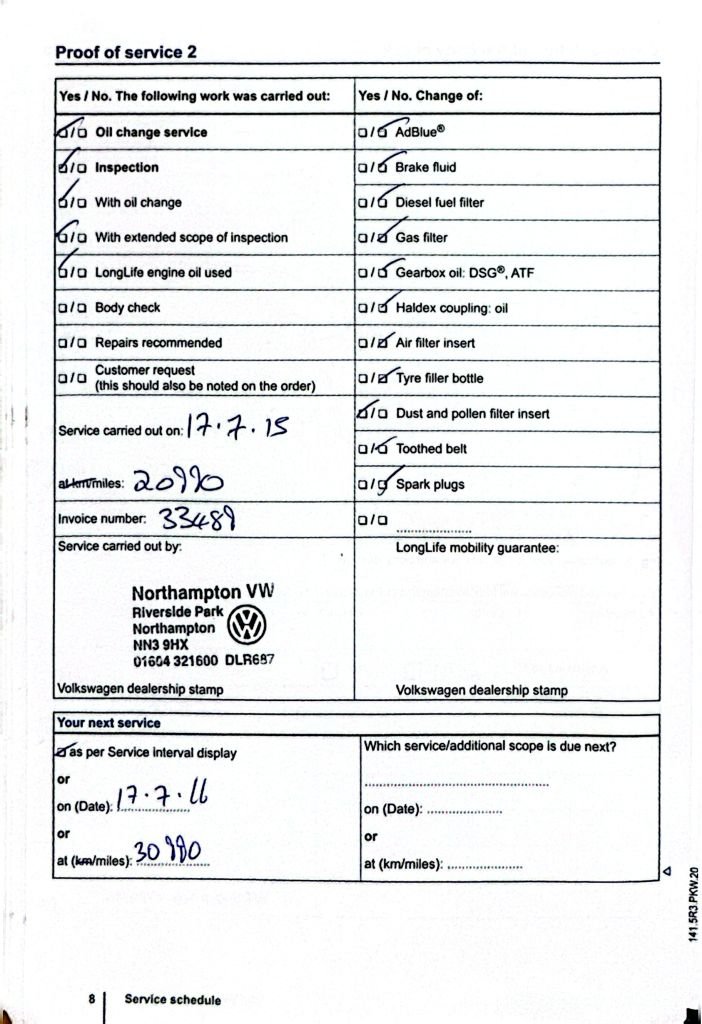 Proof of service 2
Yes / No. The following work was carried out:
Oil change service
Inspection
With oil change
With extended scope of inspection
LongLife engine oil used
Body check
Repairs recommended
Customer request
(this should also be noted on the order)
Service carried out on: 17.7.15
at km/miles:
Invoice number: 33489
Service carried out by:
Northampton VW
Riverside Park
Northampton
NN3 9HX
01604 321600 DLR687
Volkswagen dealership stamp
Yes / No. Change of:
AdBlue®
Brake fluid
Diesel fuel filter
Gas filter
Gearbox oil: DSG®, ATF
Haldex coupling: oil
Air filter insert
Tyre filler bottle
Dust and pollen filter insert
Toothed belt
Spark plugs
LongLife mobility guarantee:
Volkswagen dealership stamp
Your next service
as per Service interval display
or
on (Date): 17.7.16
or
at (km/miles):
Which service/additional scope is due next?
on (Date):
or
at (km/miles):
141.5R3.PKW.20
8 Service schedule